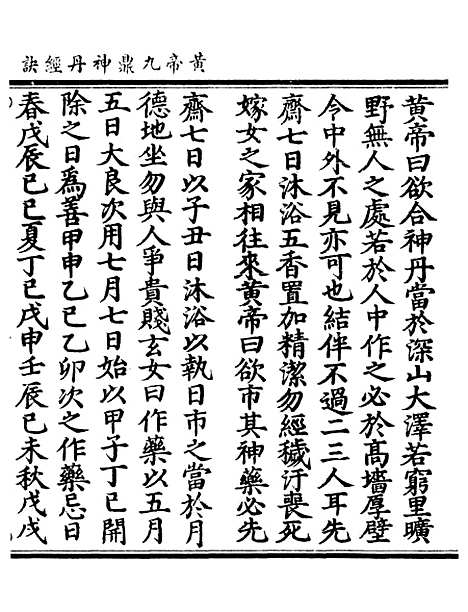 黃帝九鼎神丹經訣
黃帝曰欲合神丹當於深山大澤若窮里曠
野無人之處若於人中作之必於高墻厚壁
令中外不見亦可也結伴不過二三人耳先
齋七日沐浴五香置加精潔勿經穢汙喪死
嫁女之家相往來黃帝曰欲市其神藥必先
齋七日以子丑日沐浴以執日市之當於月
德地坐勿與人爭貴賤玄女曰作藥以五月
五日大良次用七月七日始以甲子丁巳開
除之日爲善甲申乙巳乙卯次之作藥忌日
春戊辰己巳夏丁巳戊申壬辰己未秋戊戌